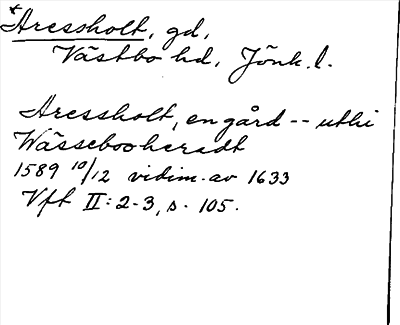 *Aressholt, gd,
Västbo hd, Jönk. l.
Aressholt, en gård -- uthi
Wässebooheradt
1589 10/12 vidim. av 1633
Vft II: 2-3, s. 105.